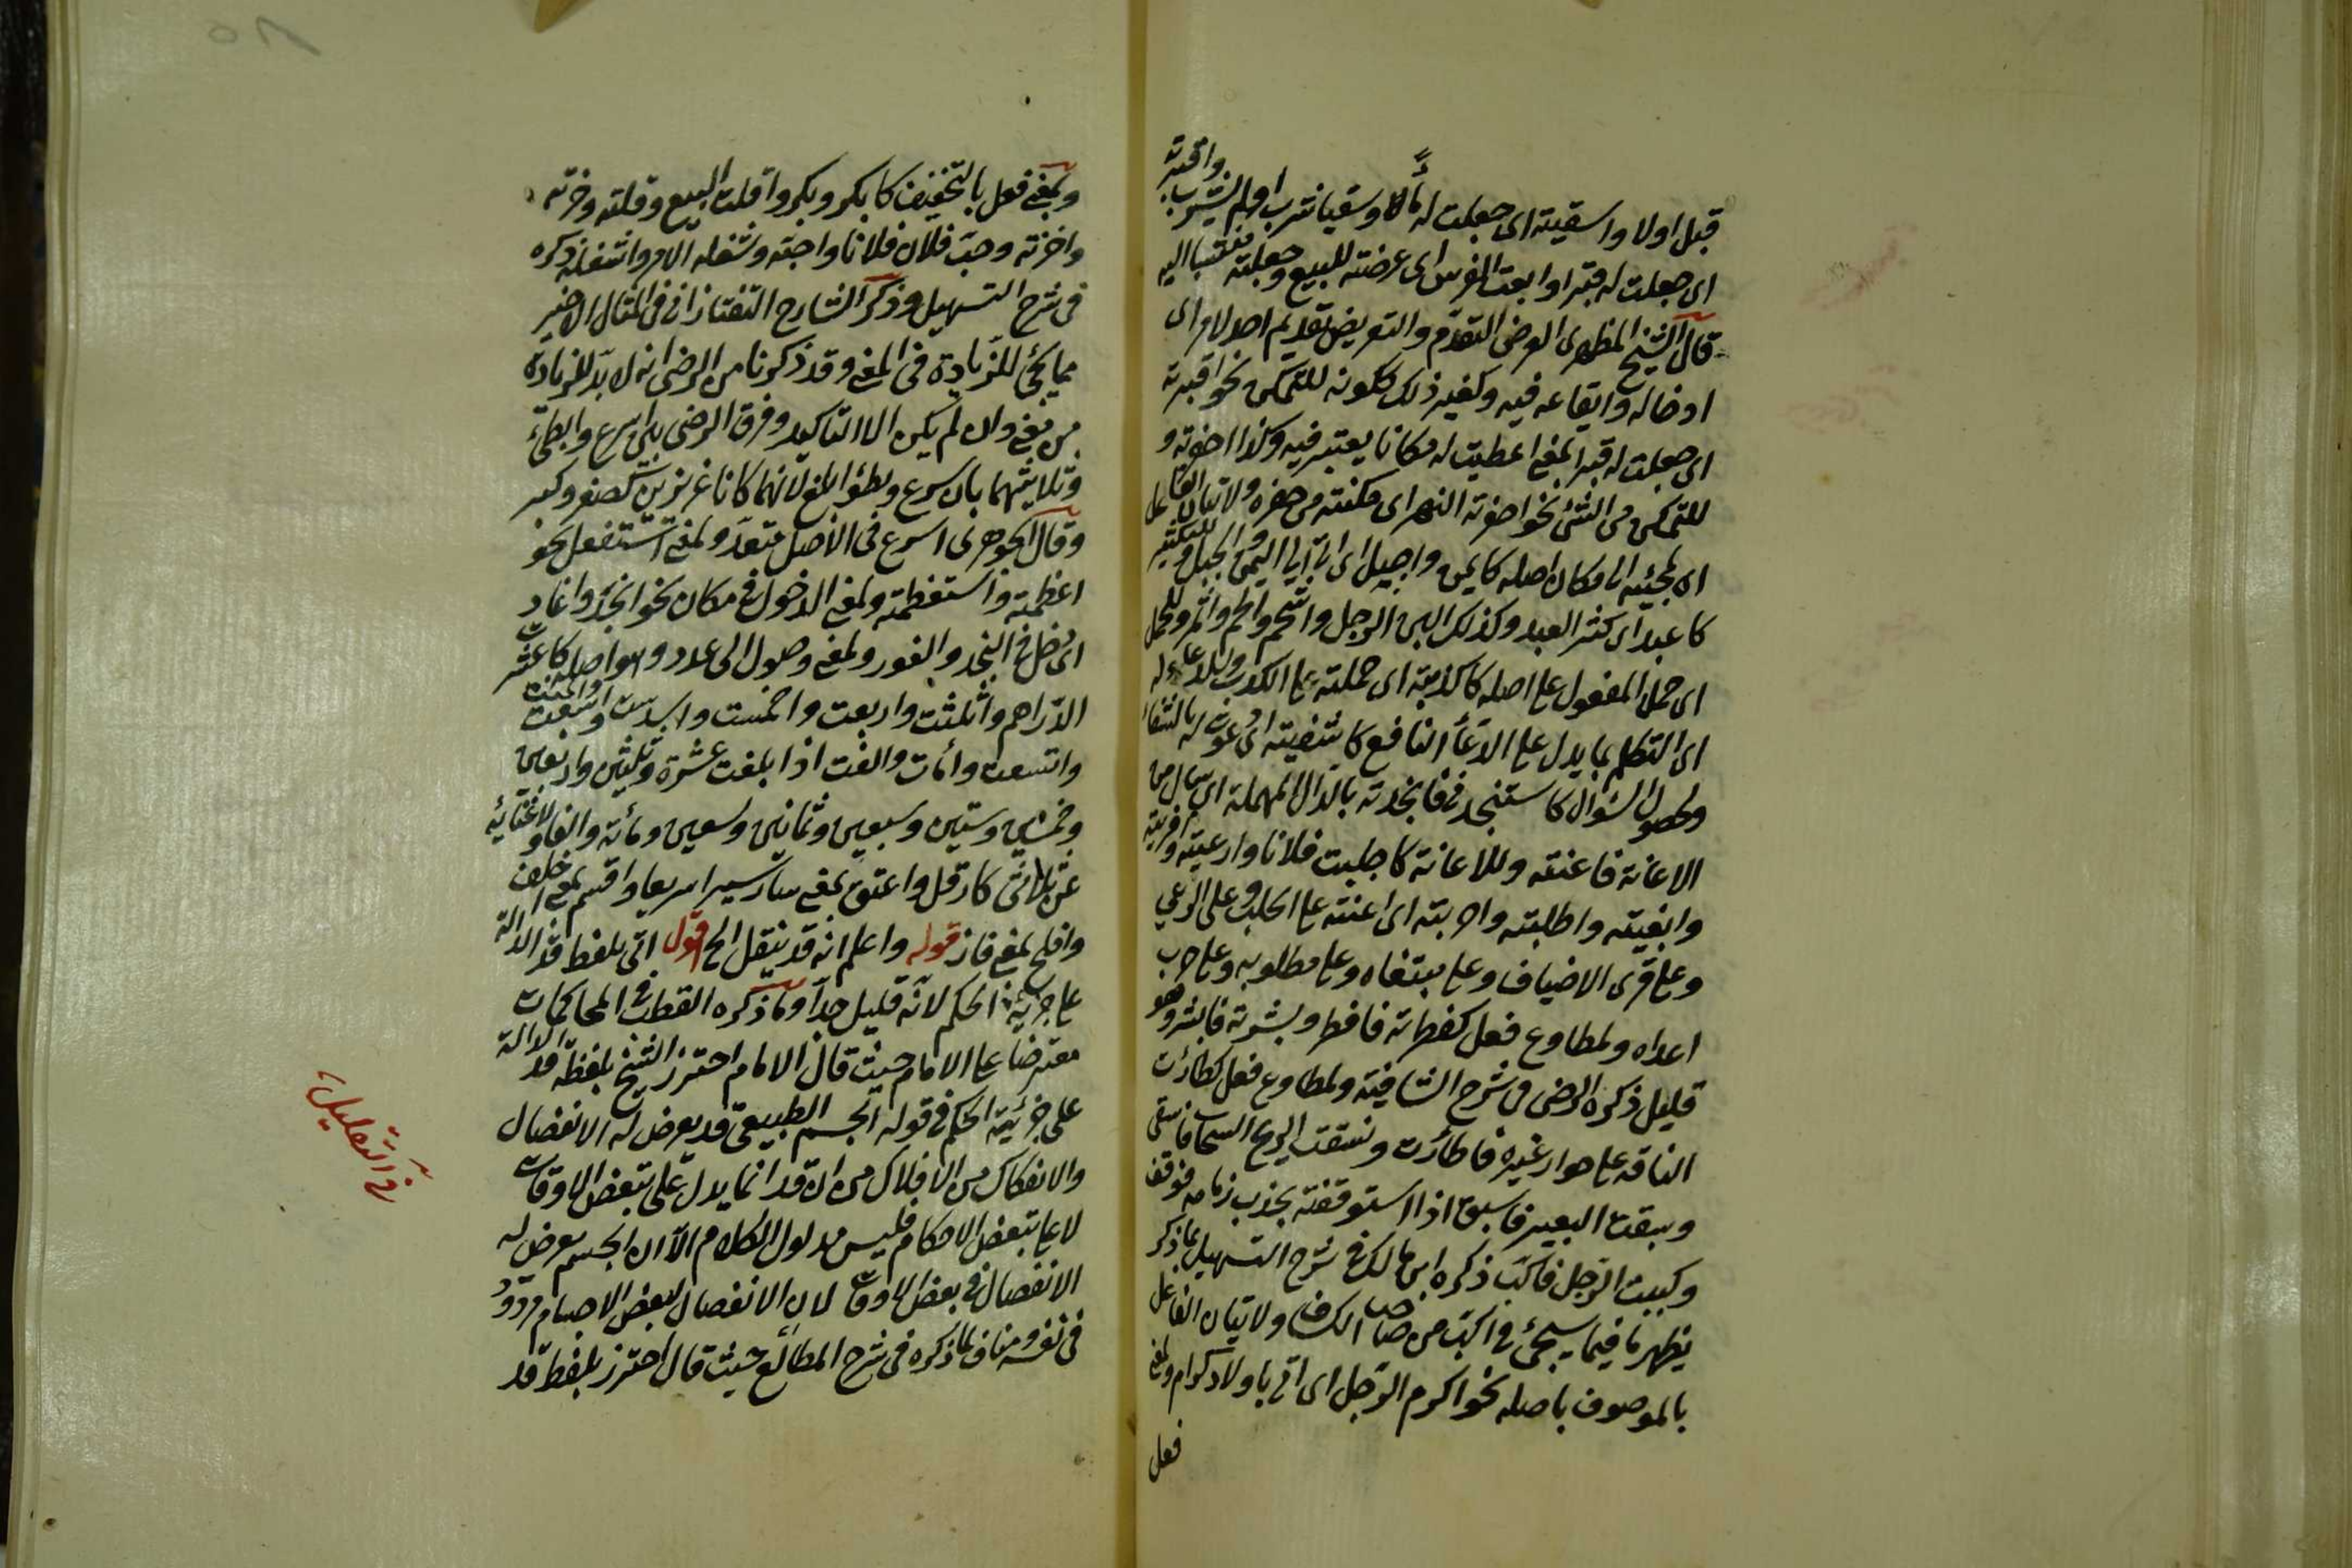 قبل اولا واسقيته اى جعلت له ماءً وسقيا شرب او لم يشرب واقبرته
اى جعلت له قبرا وابعت الفرس اى عرضته للبيع وجعلته منتسبا اليه
قال الشيخ المظهرى العرض التقدّم والتعريض تقديم احد لامر اى
ادخاله وايقاعه فيه ولغير ذلك ككونه للتمكين نحو اقبرته
اى جعلت له قبرا بمعنى اعطيت له مكانا يقبر فيه وكذا احفرته و
للتمكين من الشئ نحو احفرته النهر اى مكنته من حفره ولاتيان الفاعل
اى لمجيئه الى مكان اصله كايمن واجبل اى اتى الى اليمن والجبل وللتكثير
كاعبد اى كثر العبد وكذلك البن الرجل واشحم والحم واثمر وللحمل
اى حمل المفعول على اصله كاكذبته اى حملته على الكذب وللدعاء له
اى التكلم بما يدل على الدعاء النافع كاشفيته اى دعوت له بالشفاء
ولحصول السؤال كاستنجدنى فانجدته بالدال المهملة اى سأل من
الاعانة فاعنته وللاعانة كاحلبت فلانا وارعيته واقريته
وابغيته واطلبته واحربته اى اعنته على الحلب وعلى الرعى
وعلى قرى الاضياف وعلى مبتغاه وعلى مطلوبه وعلى حرب
اعداه ولمطاوع فعل كفطرته فافطر وبشرته فابشر وهو
قليل ذكره الرضى فى شرح الشافية ولمطاوع فعل كظأرت
الناقة على حوار غيره فاظأرت ونسقت الريح السحاب فانسق
وسبقت البعير فاسبق اذا استوقفته بجذب زمامه فوقف
وكببت الرجل فاكبّ ذكره ابن مالك فى شرح التسهيل بما ذكر
يظهر ما فيما سيجئ فى اكبّ من صاحب الكشاف ولاتيان الفاعل
بالموصوف باصله نحو اكرم الرجل اى اتى باولاد كرام ولمعنى
فعل
وبمعنى فعل بالتخفيف كابكر وبكر واقلت البيع وقلته وخزته
واخزنته وحبّ فلان فلانا واحبّه وشغله الامر واشغله ذكره
فى شرح التسهيل وذكر الشارح التفتازانى فى المثال الاخير
مما يجئ للزيادة فى المعنى وقد ذكرنا من الرضى انه لا بدّ للزيادة
من معنى وان لم يكن الا التاكيد وفرق الرضى بين اسرع وابطئ
وثلاثيهما بان سرع وبطؤ ابلغ لانهما كانا غريزتين كصغر وكبر
وقال الجوهرى اسرع فى الاصل متعدّ ولمعنى استفعل نحو
اعظمته واستعظمته ولمعنى الدخول فى مكان نحو انجد واغار
اى دخل فى النجد والغور ولمعنى وصول الى عدد وهو اصله كاعشرت
الدراهم واثلثت واربعت واخمست واسدست واسبعت واثمنت
واتسعت وأمأت وألفت اذا بلغت عشرة وثلثين واربعين
وخمسين وستين وسبعين وثمانين وتسعين ومائة والفا ولاغنائه
عن ثلاثى كارقل واعنق بمعنى سار سيرا سريعا واقسم بمعنى خلف
وافلح بمعنى فاز قوله واعلم انه قد ينقل الخ اقول اتى بلفظ قد الدالة
على جزئية الحكم لانه قليل جدّا وما ذكره القطب فى المحاكمات
معترضا على الامام حيث قال الامام احترز الشيخ بلفظة قد الدالة
على جزئية الحكم فى قوله الجسم الطبيعى قد يعرض له الانفصال
والانفكاك من الافلاك من ان قد انما يدل على تبعض الاوقات
لا على تبعض الاحكام فليس مدلول الكلام الا ان الجسم يعرض له
الانفصال فى بعض الاوقات لا ان الانفصال لبعض الاجسام مردود
فى نفسه ومناف لما ذكره فى شرح المطالع حيث قال احترز بلفظ قد
فى التقليل